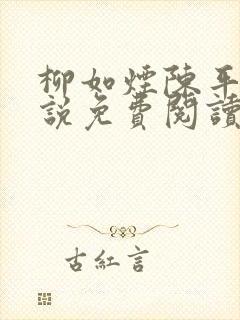 柳如煙陳平
說免費閱讀
古紅言